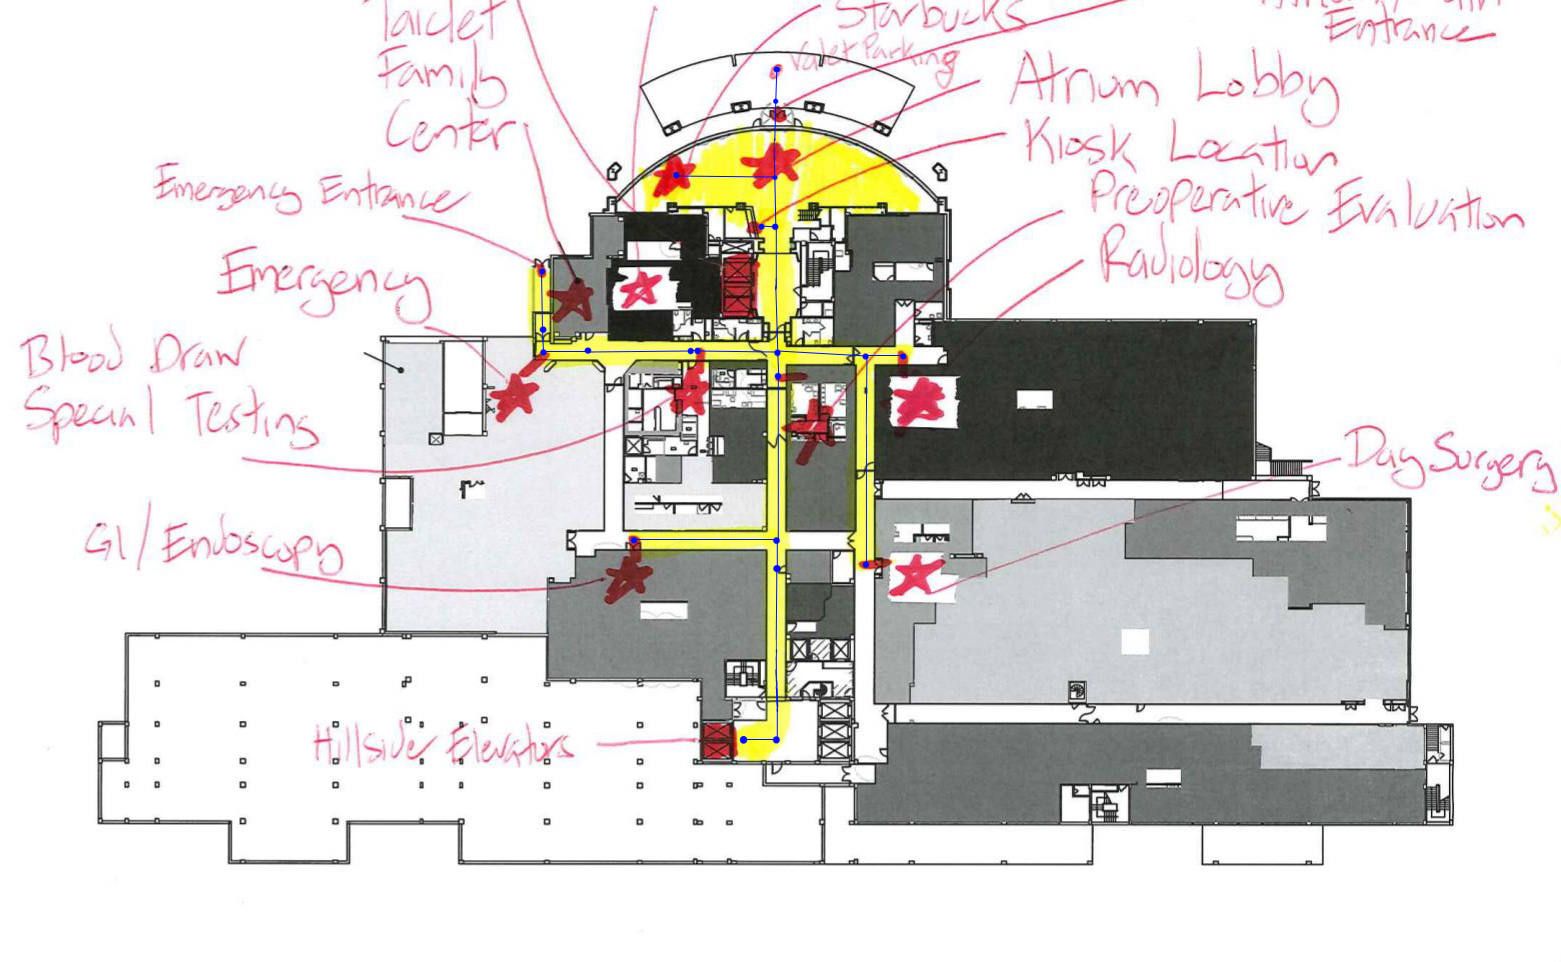 Taiclet
Family
Center
Starbucks
Valet Parking
Entrance
Atrium Lobby
Kiosk Location
Preoperative Evaluation
Radiology
Emergency Entrance
Emergency
Blood Draw
Special Testing
GI/Endoscopy
Day Surgery
Hillside Elevators